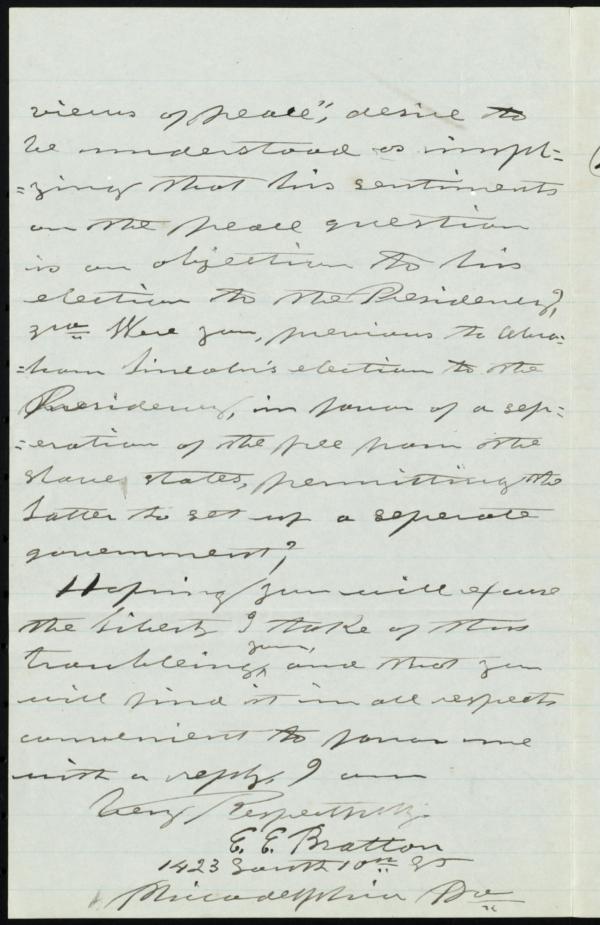 views of peace", desire to
be understood as imply-
=zing that his sentiments
on the peace question
is an objection to his
election to the Presidency?
3rd Were you, previous to Abra=
=ham Lincoln's election to the
Presidency, in favor of a sep=
=eration of the free from the
slave states, permitting the
latter to set up a seperate
government?
Hoping you will excuse
the liberty I take of thus
troubleing you, and that you
will find it in all respects
convenient to favor me
with a reply, I am
Very Respectfully.
E. E. Bratton
1423 South 10th St
Philadelphia Pa